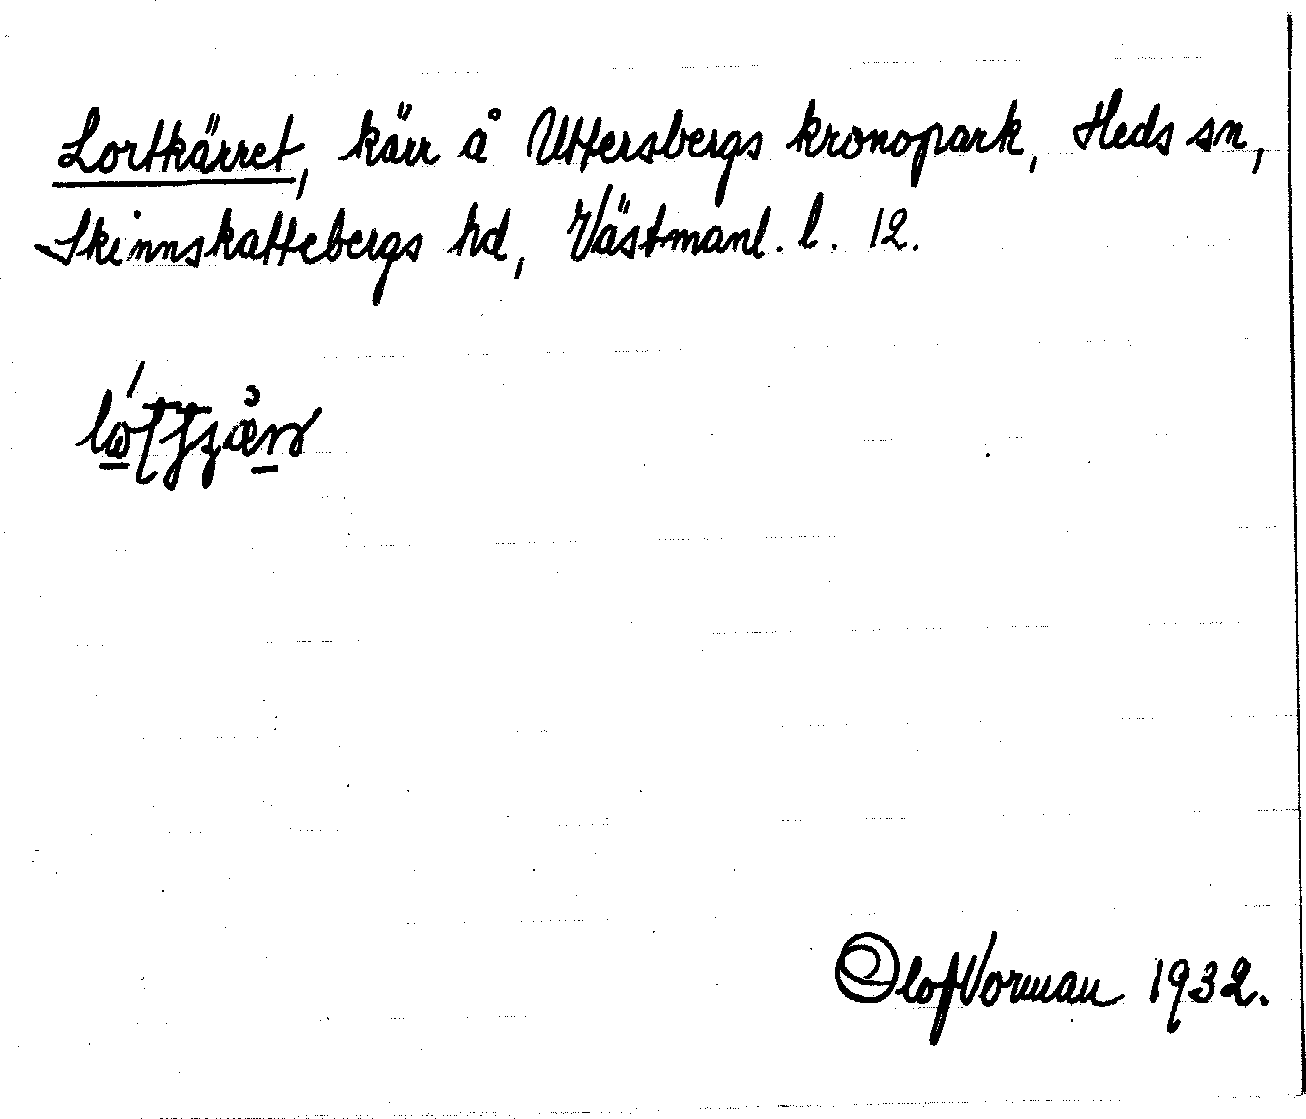 Lortkärret, kärr å Uttersbergs kronopark, Heds sn,
Skinnskattebergs hd, Västmanl. l. 12.
Olof Vorman 1932.